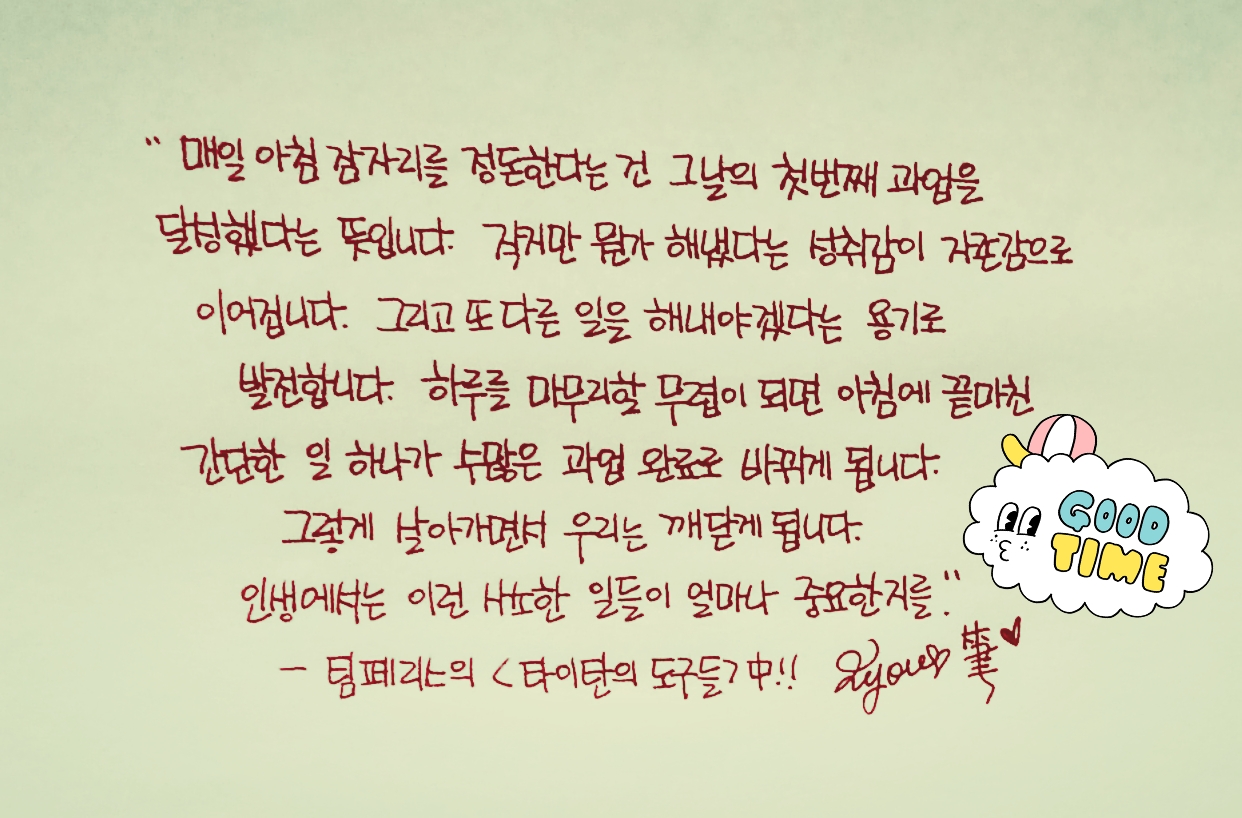 " 매일 아침 잠자리를 정돈한다는 건 그날의 첫번째 과업을
달성했다는 뜻입니다. 작지만 뭔가 해냈다는 성취감이 자존감으로
이어집니다. 그리고 또 다른 일을 해내야겠다는 용기로
발전합니다. 하루를 마무리할 무렵이 되면 아침에 끝마친
간단한 일 하나가 수많은 과업 완료로 바뀌게 됩니다.
그렇게 살아가면서 우리는 깨닫게 됩니다.
인생에서는 이런 사소한 일들이 얼마나 중요한지를."
GOOD
TIME
- 팀페리스의 <타이탄의 도구들> 中!! 筆